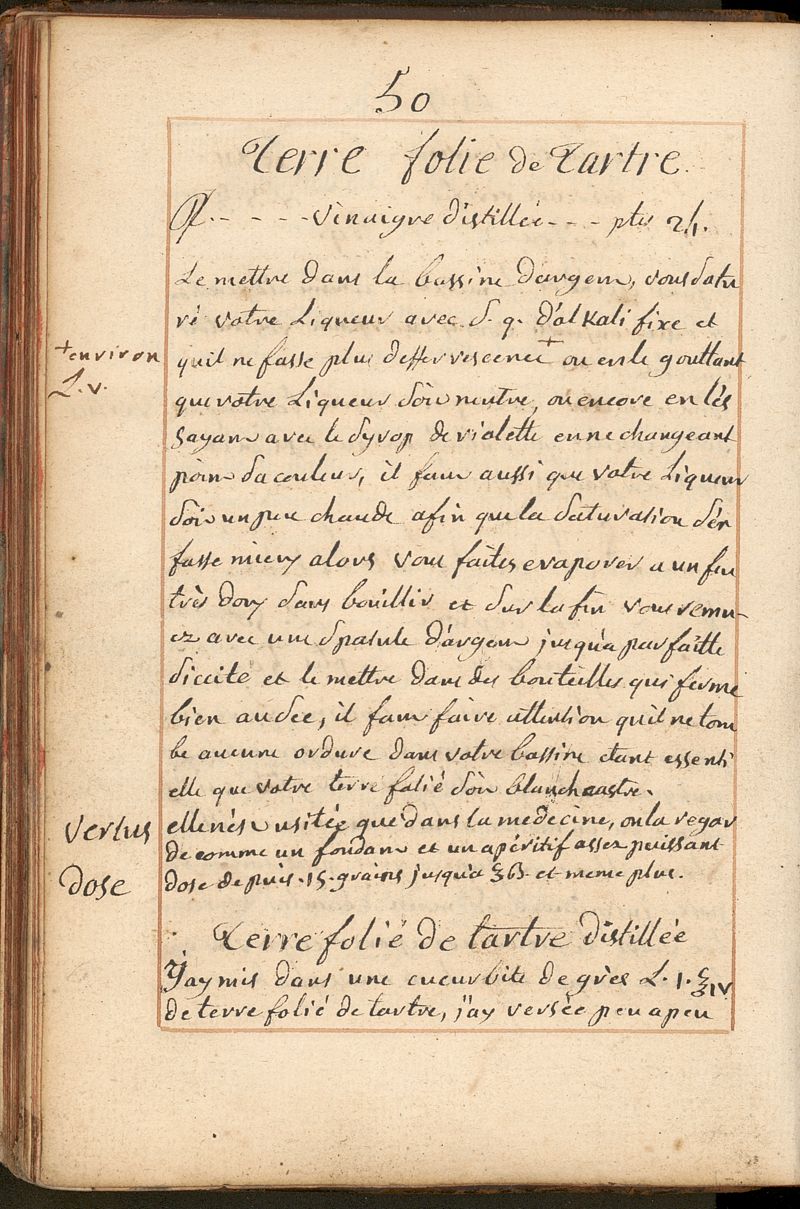 50
Terre folie de Tartre.
℞. - - - - Vinaigre distillée - - - ptes 24.
Le mettre dans la bassine d'argent, vous satu
ré votre Liqueur avec S. q. d'alkali fixe et
+environ
L. v.
quil ne fasse plus deffervescence + ou en le gouttant
que votre Liqueur Soit neutre, ou encore en lés
Sayant avec le Syrop de violette en ne changeant
point Sa couleur, il faut aussi que votre Liqueur
Soit un peu chaude afin que la Saturasion S'en
fasse mieux alors vous faites evaporer a un feu
très doux Sans bouillir et Sur la fin vous remu-
ez avec une Spatule d'argent jusqu'a parfaitte
Siccité et le mettre dans des bouteilles qui ferme
bien au Sec, il faut faire attention qu'il ne tom
be aucune ordure dans votre bassine etant essenti
elle que votre terre folié Soit blanchaastre.
vertus
elle n'ést usitée que dans la medecine, on la regar
de comme un fondant et un apéritif assez puissant
dose
dose depuis .15. grains jusqu'a ʒß et meme plus.
Terre folié de tartre distillée
J'ay mis dans une cucurbite de grès L. 1. ℥iv
de terre folié de tartre, j'ay versée peu a peu